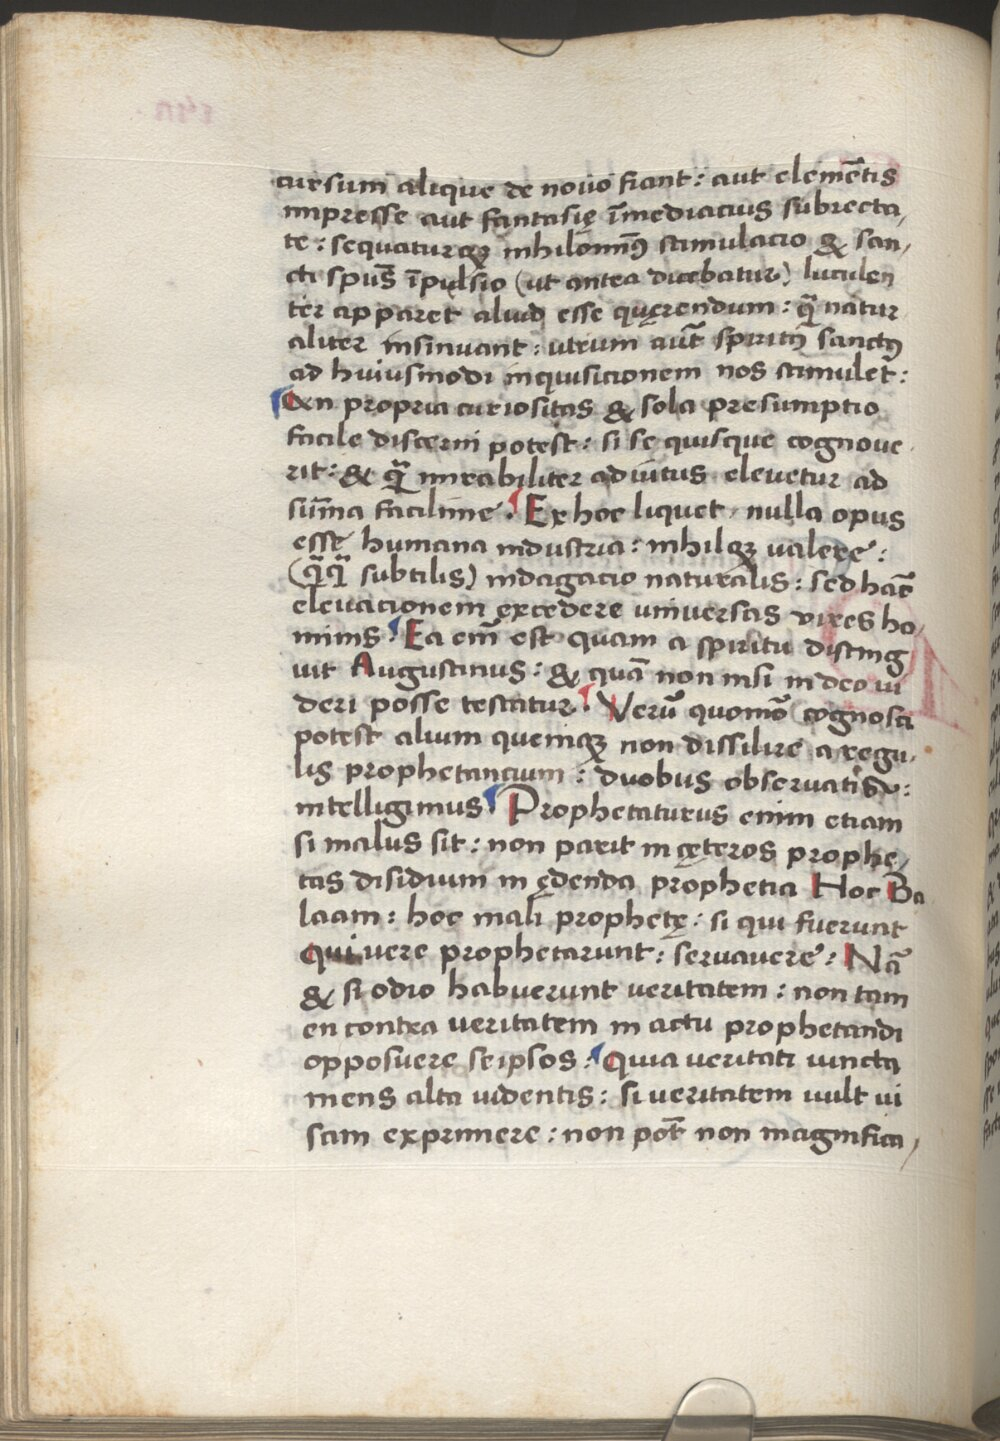 cursum alique de novo fiant: aut elemētis
impresse aut fantasię īmediacius subiecta,
te: sequaturqꝫ nihilominꝰ stimulacio & san,
cti spūs īpulsio (ut antea dicebatur) luculen
ter apparet aliud esse quęrendum: ꝙ̄ natur
aliter insinuant: utrum aūt spiritꝰ sanctꝰ
ad huiusmodi inquisicionem nos stimulet:
an propria curiositas & sola presumptio
facile discerni potest: si se quisque cognove
rit: & q̄ mirabiliter adiutus elevetur ad
sūma facilime. Ex hoc liquet nulla opus
esse humana industria: nihilqꝫ valere:
(q̄q̄ subtilis) indagacio naturalis: sed hāc
elevacionem excedere universas vires ho,
minis. Ea em̄ est quam a spiritu disting
uit Augustinus: & quā non nisi in deo vi
deri posse testatur. Verū quomō cognosci
potest alium quemqꝫ non dissilire a regu,
lis prophetancium: duobus observatis
intelligimus. Prophetaturus enim etiam
si malus sit: non parit in cęteros prophe,
tas disidium in ędenda prophetia Hoc Ba
laam: hoc mali prophetę: si qui fuerunt
qui vere prophetarunt: servavere: Nā
& si odio habuerunt veritatem: non tam
en contra veritatem in actu prophetandi
opposuere seipsos: Quia veritati vincta
mens alta videntis: si veritatem vult vi
sam exprimere: non pōt non magnifica,